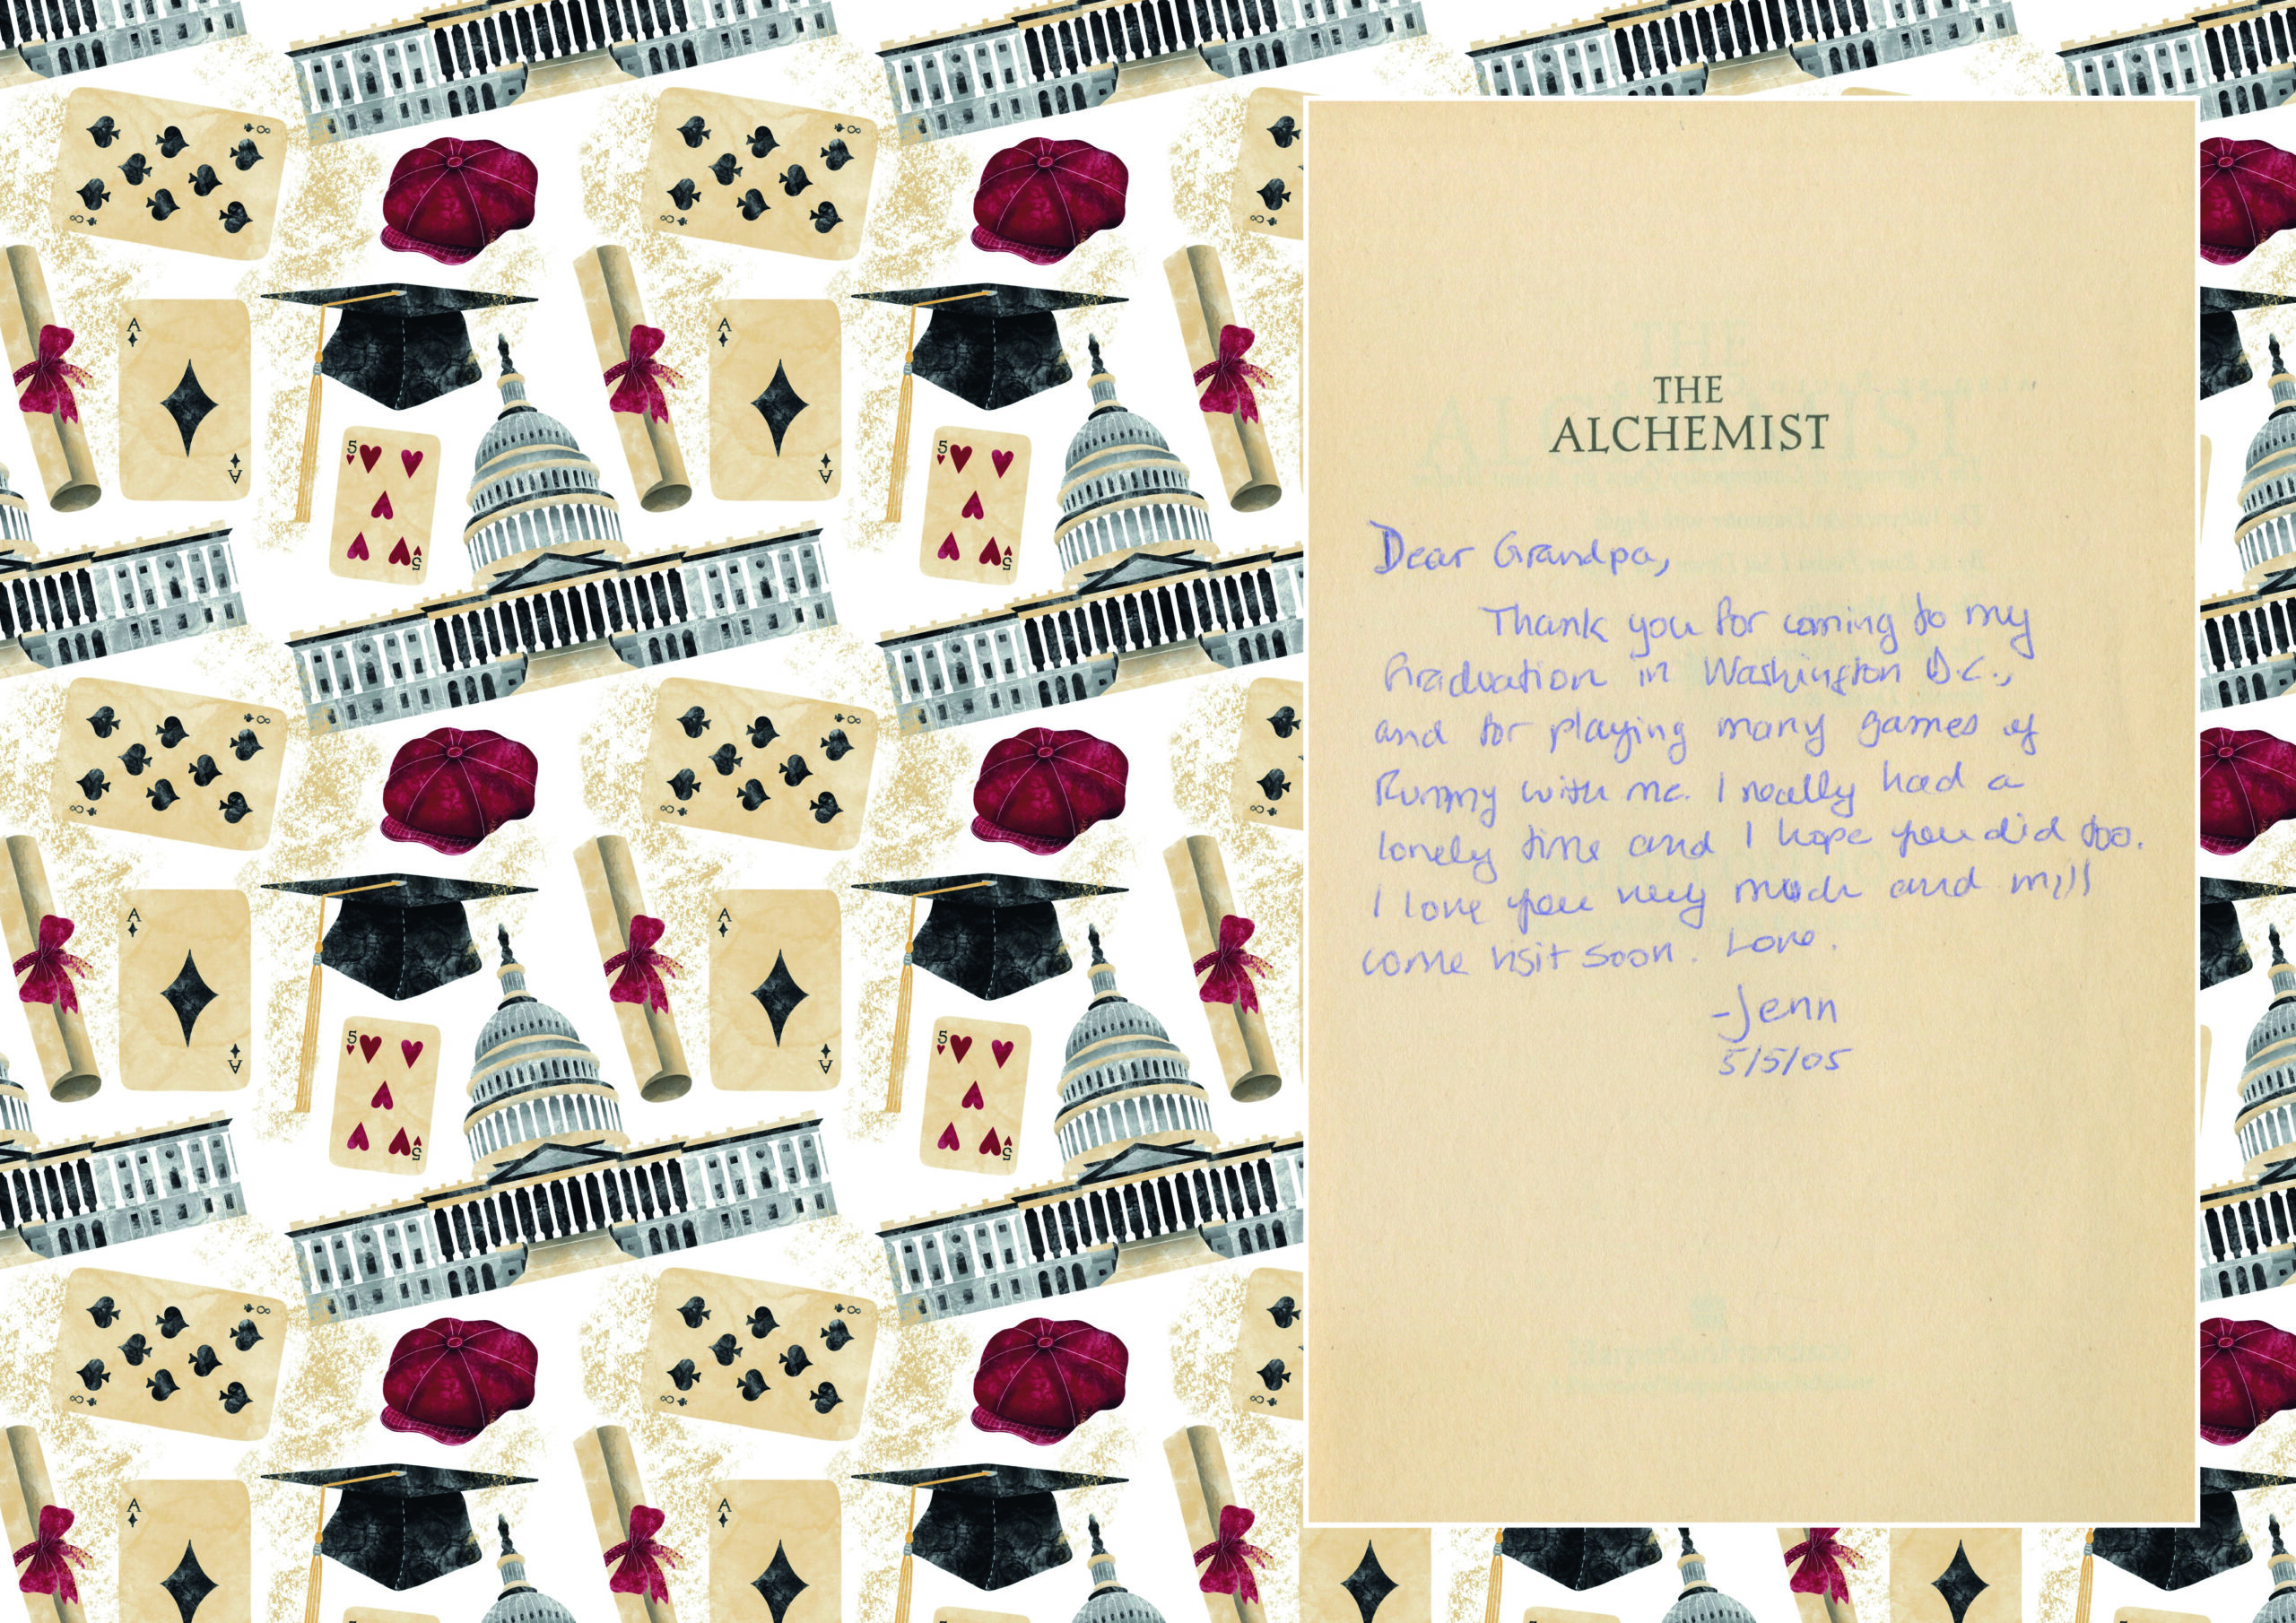 THE
ALCHEMIST
Dear Grandpa,
Thank you for coming to my
Graduation in Washington D.C.,
and for playing many games of
Rummy with me. I really had a
lovely time and I hope you did too.
I love you very much and will
come visit soon. Love.
-Jenn
5/5/05
8
8
A
A
5
5